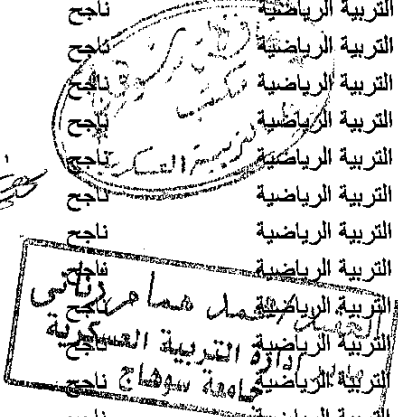 التربية الرياضية ناجح
التربية الرياضية ناجح
التربية الرياضية ناجح
التربية الرياضية ناجح
التربية الرياضية ناجح
التربية الرياضية ناجح
التربية الرياضية ناجح
التربية الرياضية ناجح
التربية الرياضية ناجح
التربية الرياضية ناجح
التربية الرياضية ناجح
التربية الرياضية ناجح
مكتب
التربية العسكرية
همام
إدارة التربية العسكرية
جامعة سوهاج